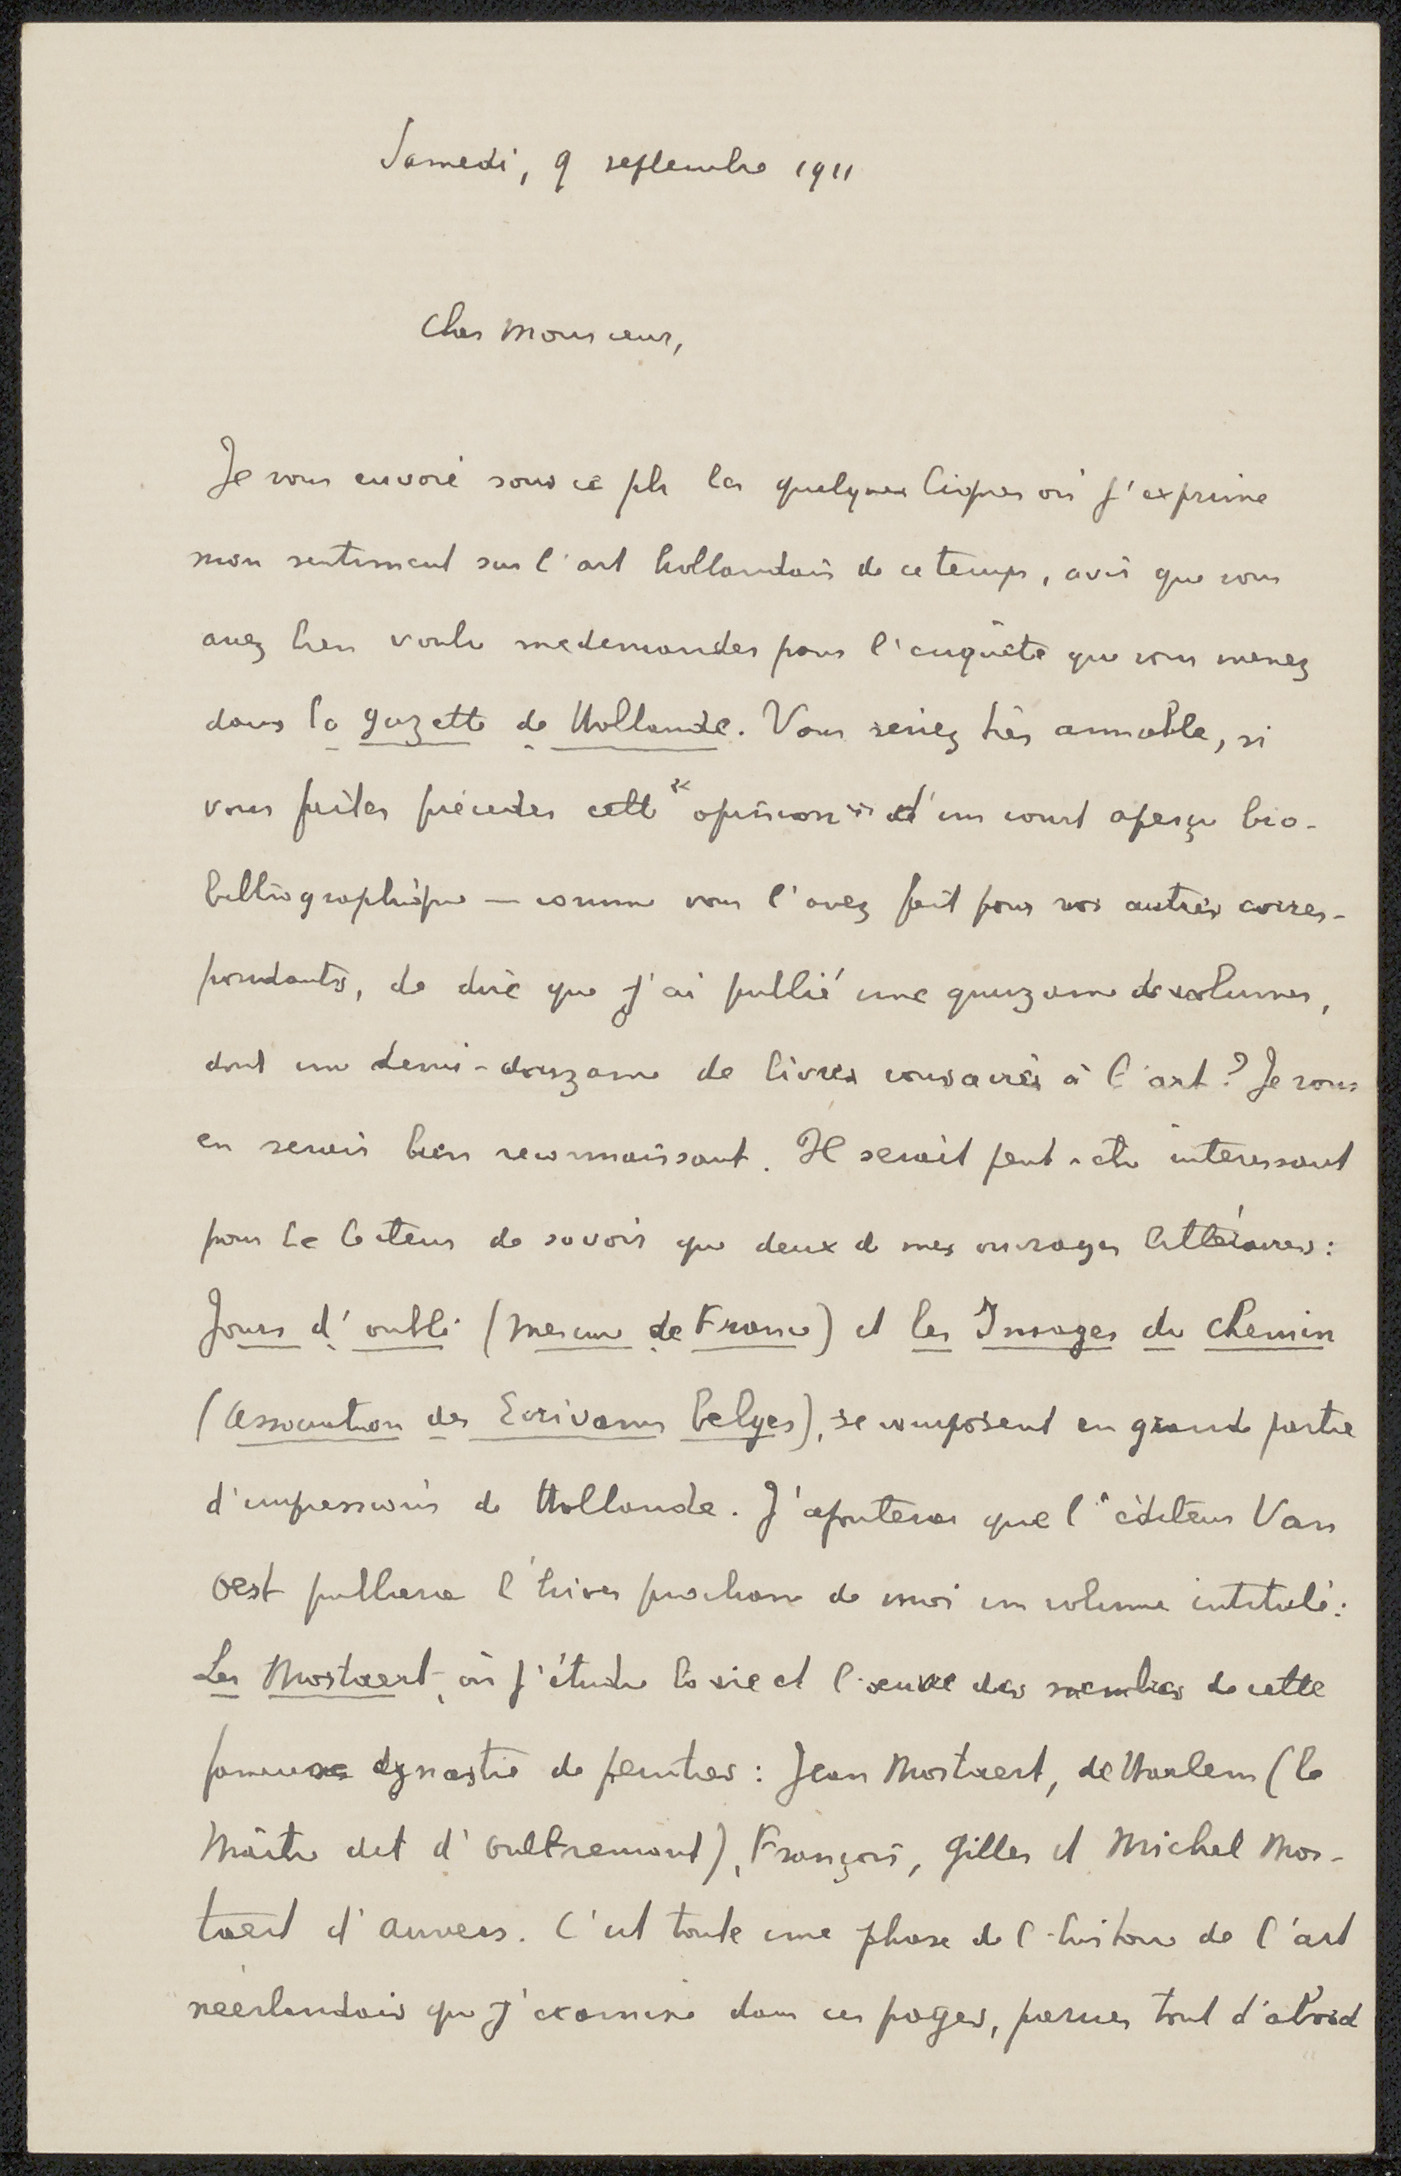 Samedi, 9 septembre 1911
Cher Monsieur,
Je vous envoie sous ce pli les quelques lignes où j'exprime
mon sentiment sur l'art hollandais de ce temps, avis que vous
avez bien voulu me demander pour l'enquête que vous menez
dans la Gazette de Hollande. Vous seriez très aimable, si
vous faites précéder cette "opinion" d'un court aperçu bio-
bibliographique — comme vous l'avez fait pour vos autres corres-
pondants, de dire que j'ai publié une quinzaine de volumes,
dont une demi-douzaine de livres consacrés à l'art? Je vous
en serais bien reconnaissant. Il serait peut-être intéressant
pour le lecteur de savoir que deux de mes ouvrages littéraires:
Jours d'oubli (Mercure de France) et les Images du chemin
(Association des Ecrivains belges), se composent en grande partie
d'impressions de Hollande. J'ajouterai que l'éditeur Van
Oest publiera l'hiver prochain de moi un volume intitulé:
Les Mostaert, où j'étudie la vie et l'œuvre des membres de cette
fameuse dynastie de peintres: Jean Mostaert, de Haarlem (le
Maître dit d'Oultremont), François, Gilles et Michel Mos-
taert d'Anvers. C'est toute une phase de l'histoire de l'art
néerlandais que j'examine dans ces pages, parues tout d'abord